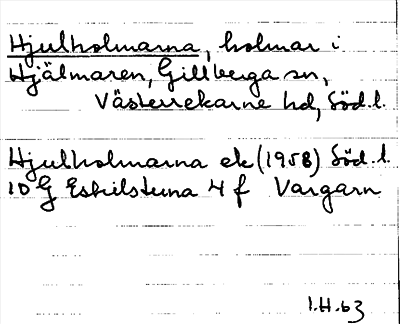 Hjulholmarna, holmar i
Hjälmaren, Gillberga sn,
Västerrekarne hd, Söd.l.
Hjulholmarna ek (1958) Söd.l.
10 G Eskilstuna 4 f Vargarn
1.H.63